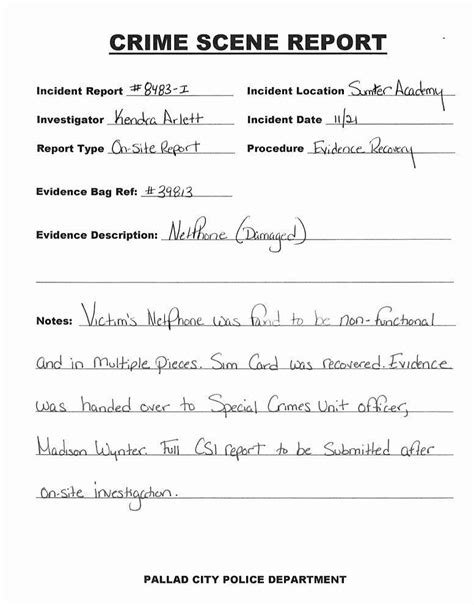 CRIME SCENE REPORT
Incident Report #8483-I Incident Location Sumter Academy
Investigator Kendra Arlett Incident Date 11/21
Report Type On-Site Report Procedure Evidence Recovery
Evidence Bag Ref: #39813
Evidence Description: NetPhone (Damaged)
Notes: Victim's NetPhone was found to be non-functional
and in Multiple Pieces. Sim Card was recovered. Evidence
was handed over to Special Crimes Unit officer,
Madison Wynter. Full CSI report to be Submitted after
on-site investigation.
PALLAD CITY POLICE DEPARTMENT